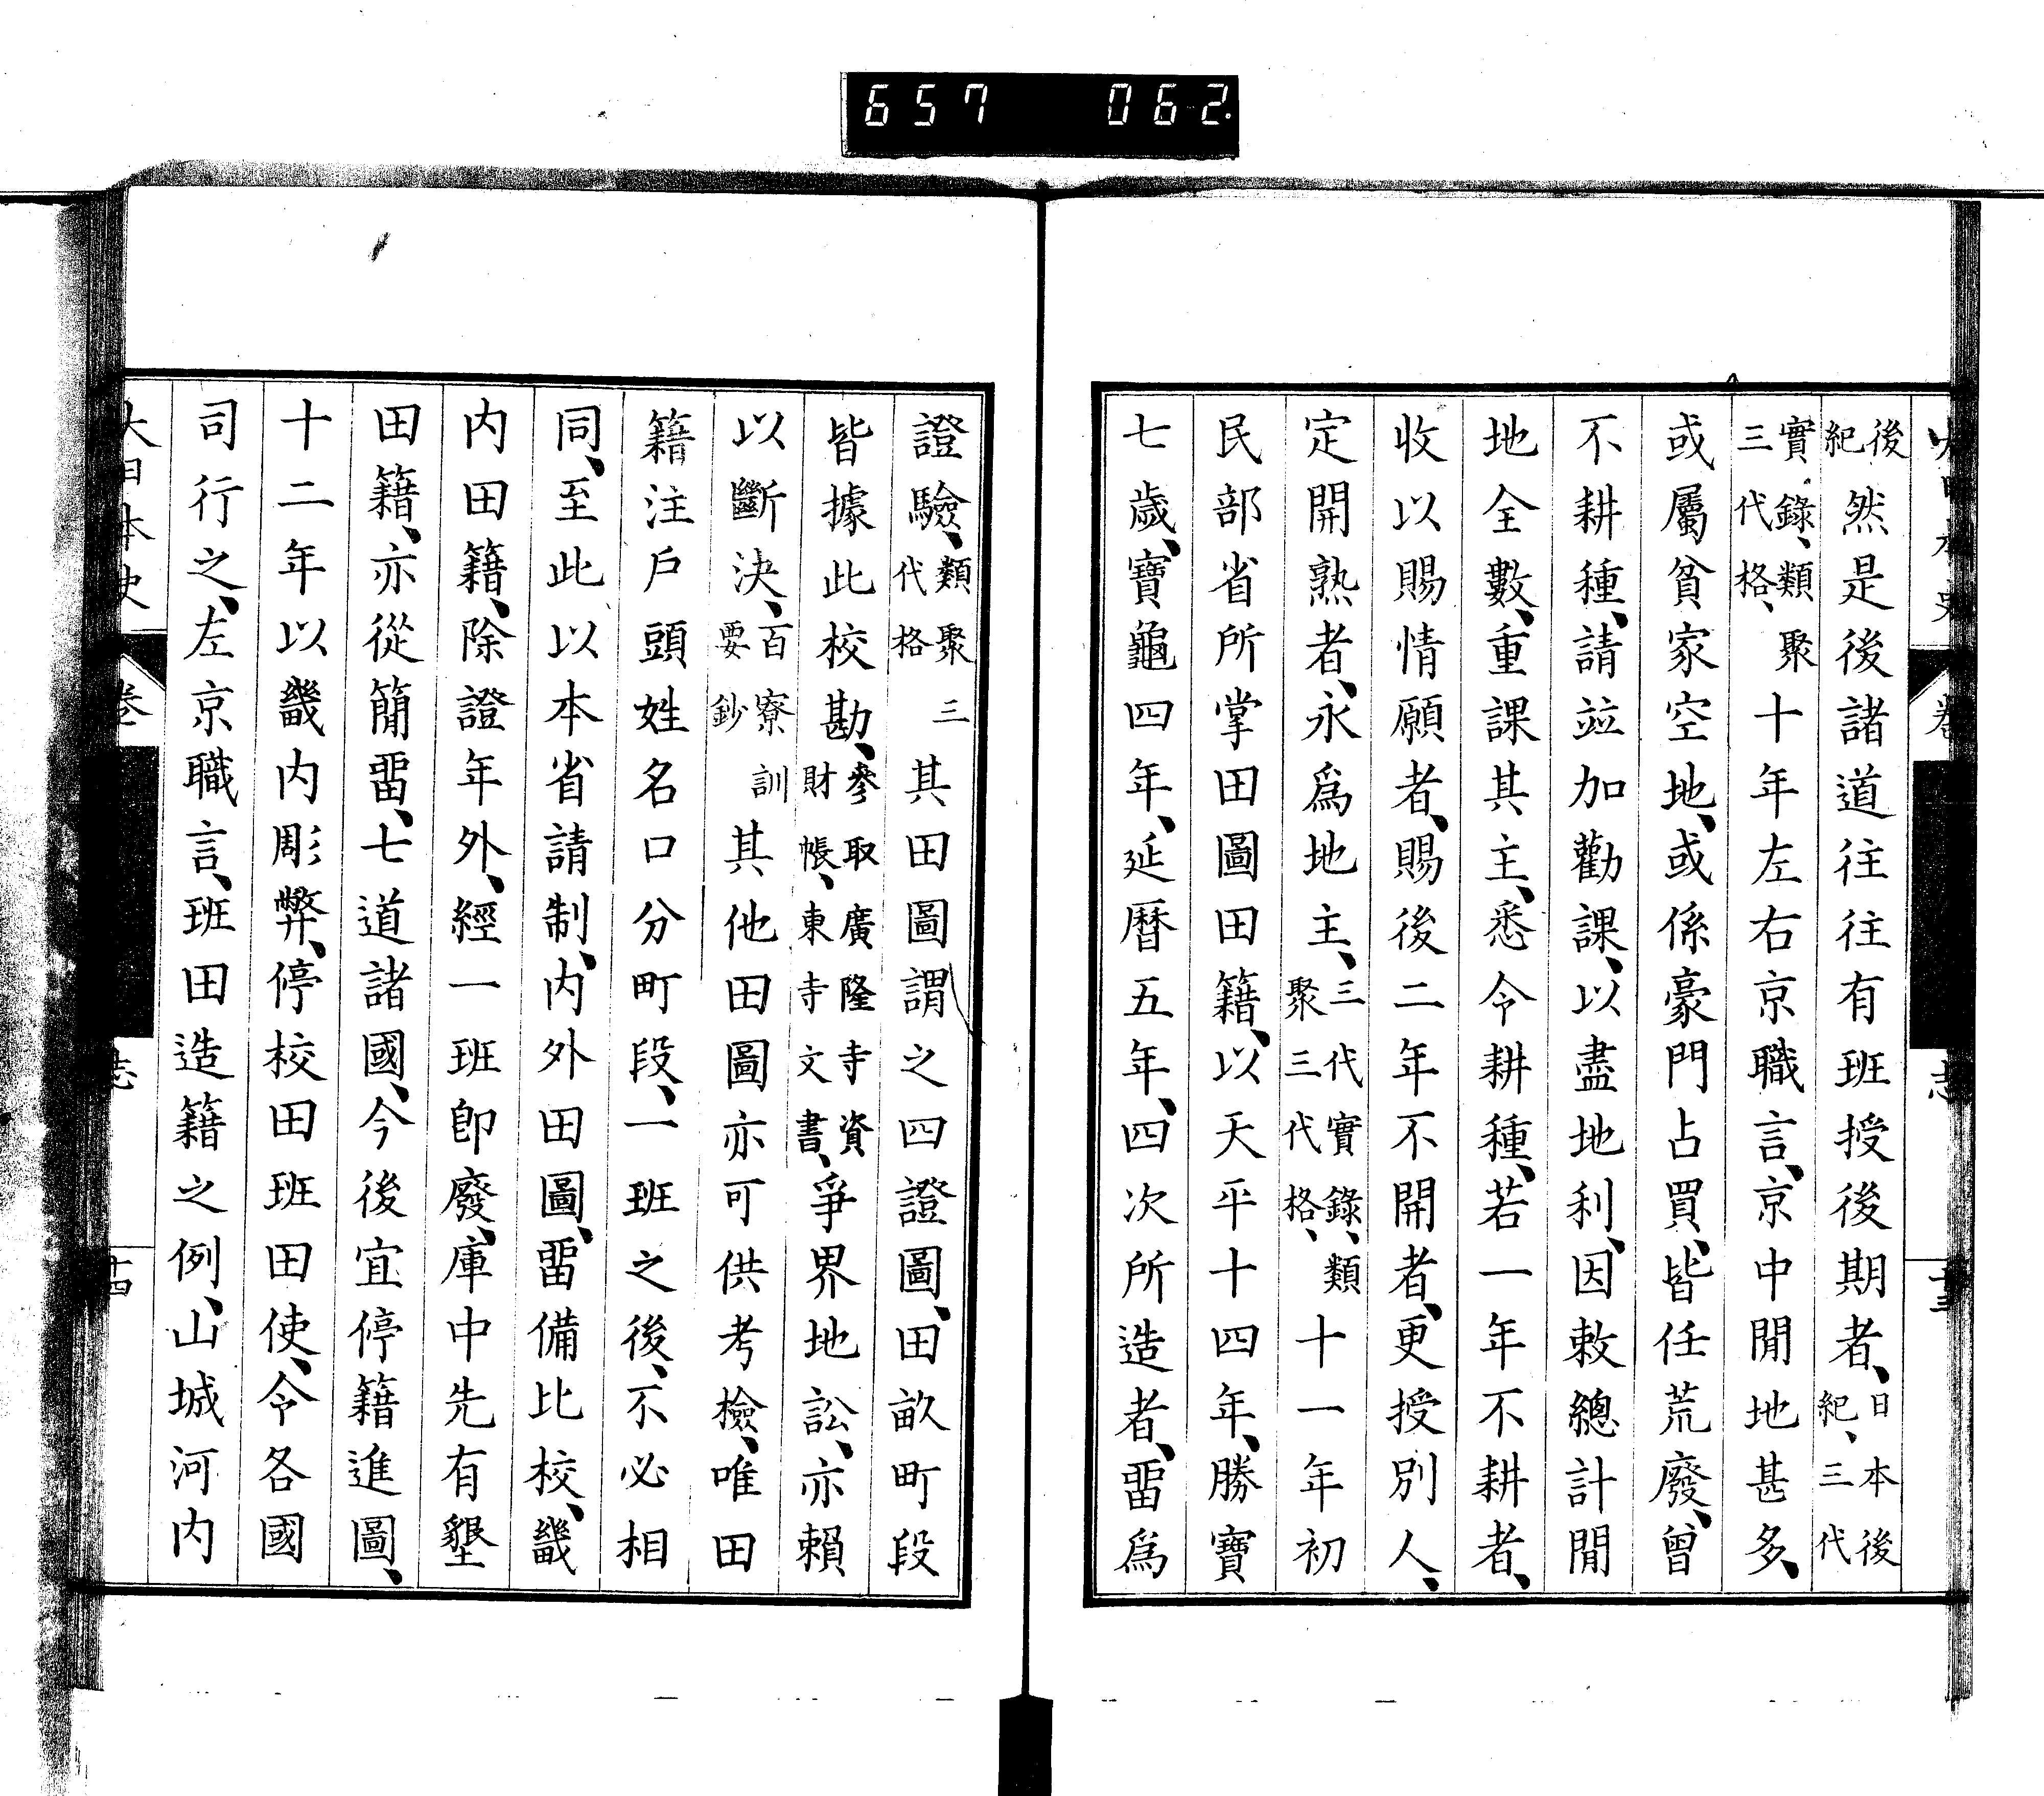 大日本史 卷 志 十三
後紀然是後諸道往往有班授後期者、日本後紀、三代
實錄、類聚三代格、十年左右京職言、京中閒地甚多、
或屬貧家空地、或係豪門占買、皆任荒廢、曾
不耕種、請竝加勸課、以盡地利、因敕總計閒
地全數、重課其主、悉令耕種、若一年不耕者、
收以賜情願者、賜後二年不開者、更授別人、
定開熟者、永爲地主、三代實錄、類聚三代格、十一年初
民部省所掌田圖田籍、以天平十四年、勝寶
七歲、寶龜四年、延曆五年、四次所造者、畱爲
證驗、類聚三代格其田圖謂之四證圖、田畝町段
皆據此校勘、參取廣隆寺資財帳、東寺文書、爭界地訟、亦賴
以斷決、百寮訓要鈔其他田圖亦可供考檢、唯田
籍注戶頭姓名口分町段、一班之後、不必相
同、至此以本省請制、內外田圖、畱備比校、畿
內田籍、除證年外、經一班卽廢、庫中先有墾
田籍、亦從簡畱、七道諸國、今後宜停籍進圖、
十二年以畿內彫弊、停校田班田使、令各國
司行之、左京職言、班田造籍之例、山城河內
大日本史 卷 志 十四
657 062